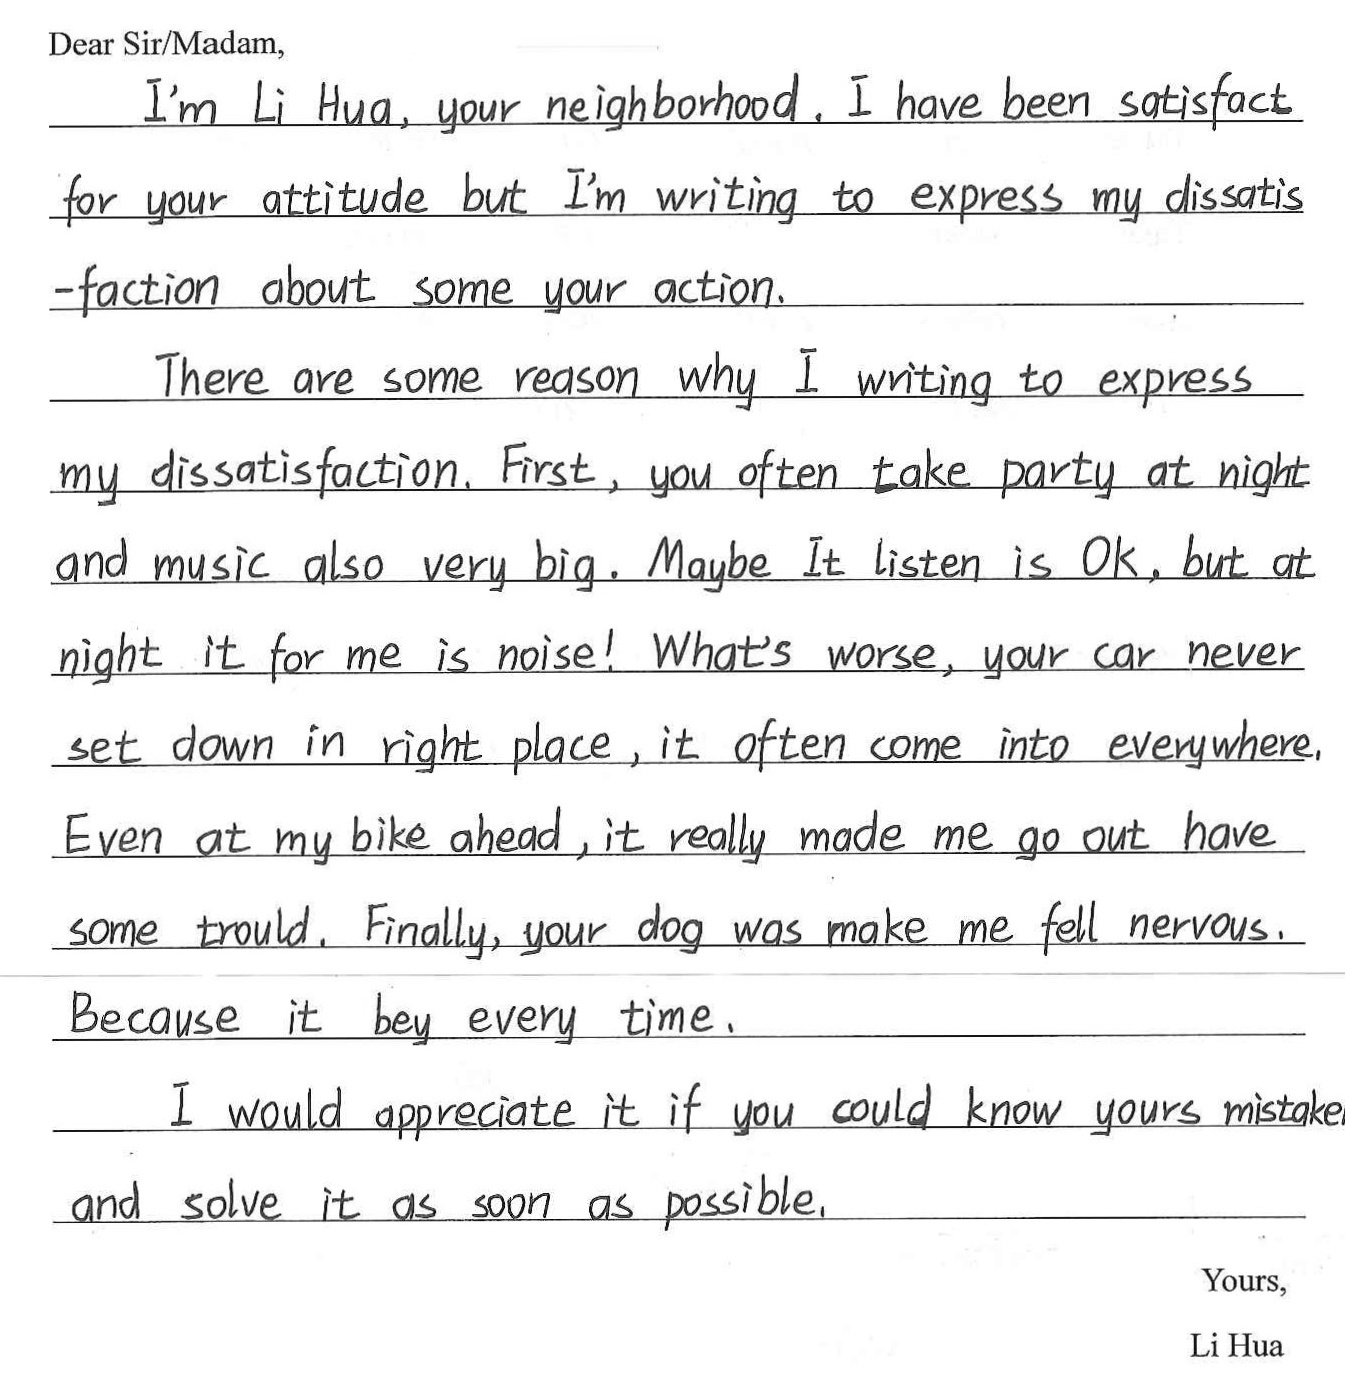 Dear Sir/Madam,
I'm Li Hua, your neighborhood. I have been satisfact
for your attitude but I'm writing to express my dissatis
-faction about some your action.
There are some reason why I writing to express
my dissatisfaction. First, you often take party at night
and music also very big. Maybe It listen is Ok, but at
night it for me is noise! What's worse, your car never
set down in right place, it often come into everywhere.
Even at my bike ahead, it really made me go out have
some trould. Finally, your dog was make me fell nervous.
Because it bey every time.
I would appreciate it if you could know yours mistake
and solve it as soon as possible.
Yours,
Li Hua